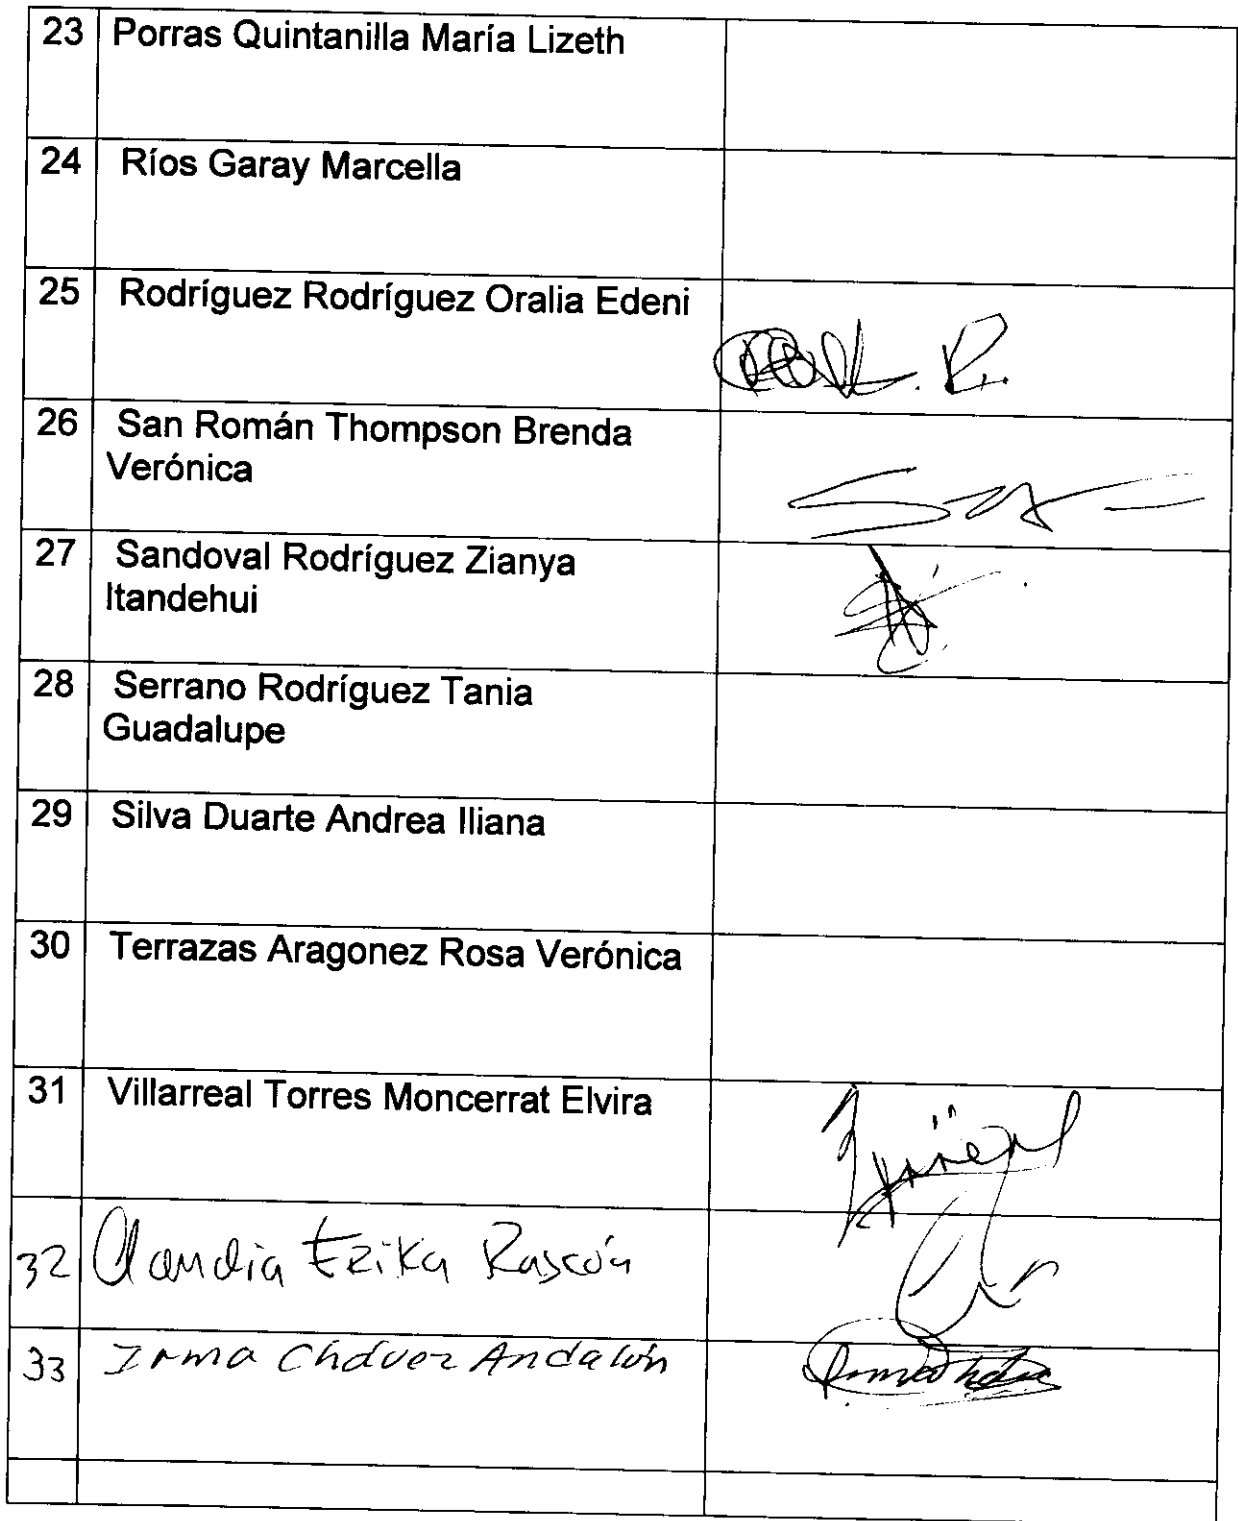 23 Porras Quintanilla María Lizeth
24 Ríos Garay Marcella
25 Rodríguez Rodríguez Oralia Edeni
26 San Román Thompson Brenda
Verónica
27 Sandoval Rodríguez Zianya
Itandehui
28 Serrano Rodríguez Tania
Guadalupe
29 Silva Duarte Andrea Iliana
30 Terrazas Aragonez Rosa Verónica
31 Villarreal Torres Moncerrat Elvira
32 Claudia Erika Rascón
33 Irma Chávez Andalón